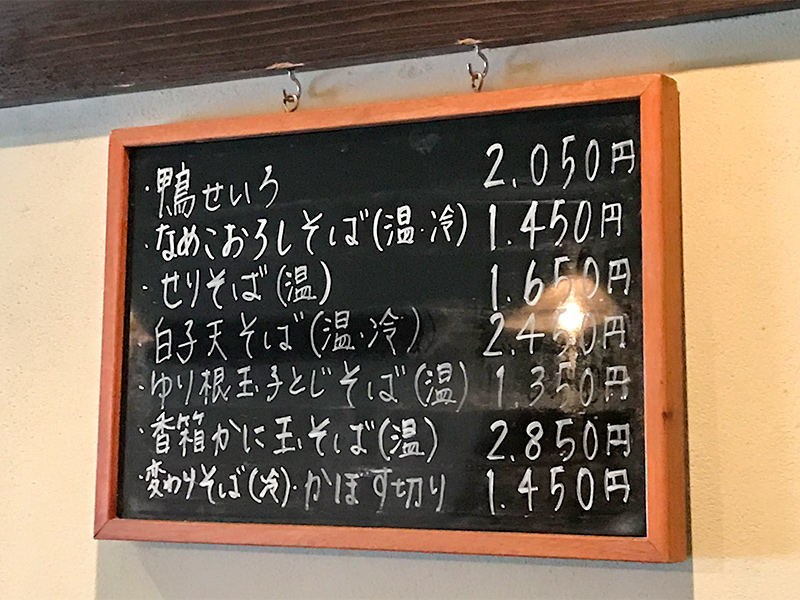 ・鴨せいろ 2.050円
・なめこおろしそば(温・冷) 1.450円
・せりそば(温) 1.650円
白子天そば(温・冷) 2.450円
・ゆり根玉子とじそば(温) 1.350円
・香箱かに玉そば(温) 2.850円
・変わりそば(冷)・かぼす切り 1.450円